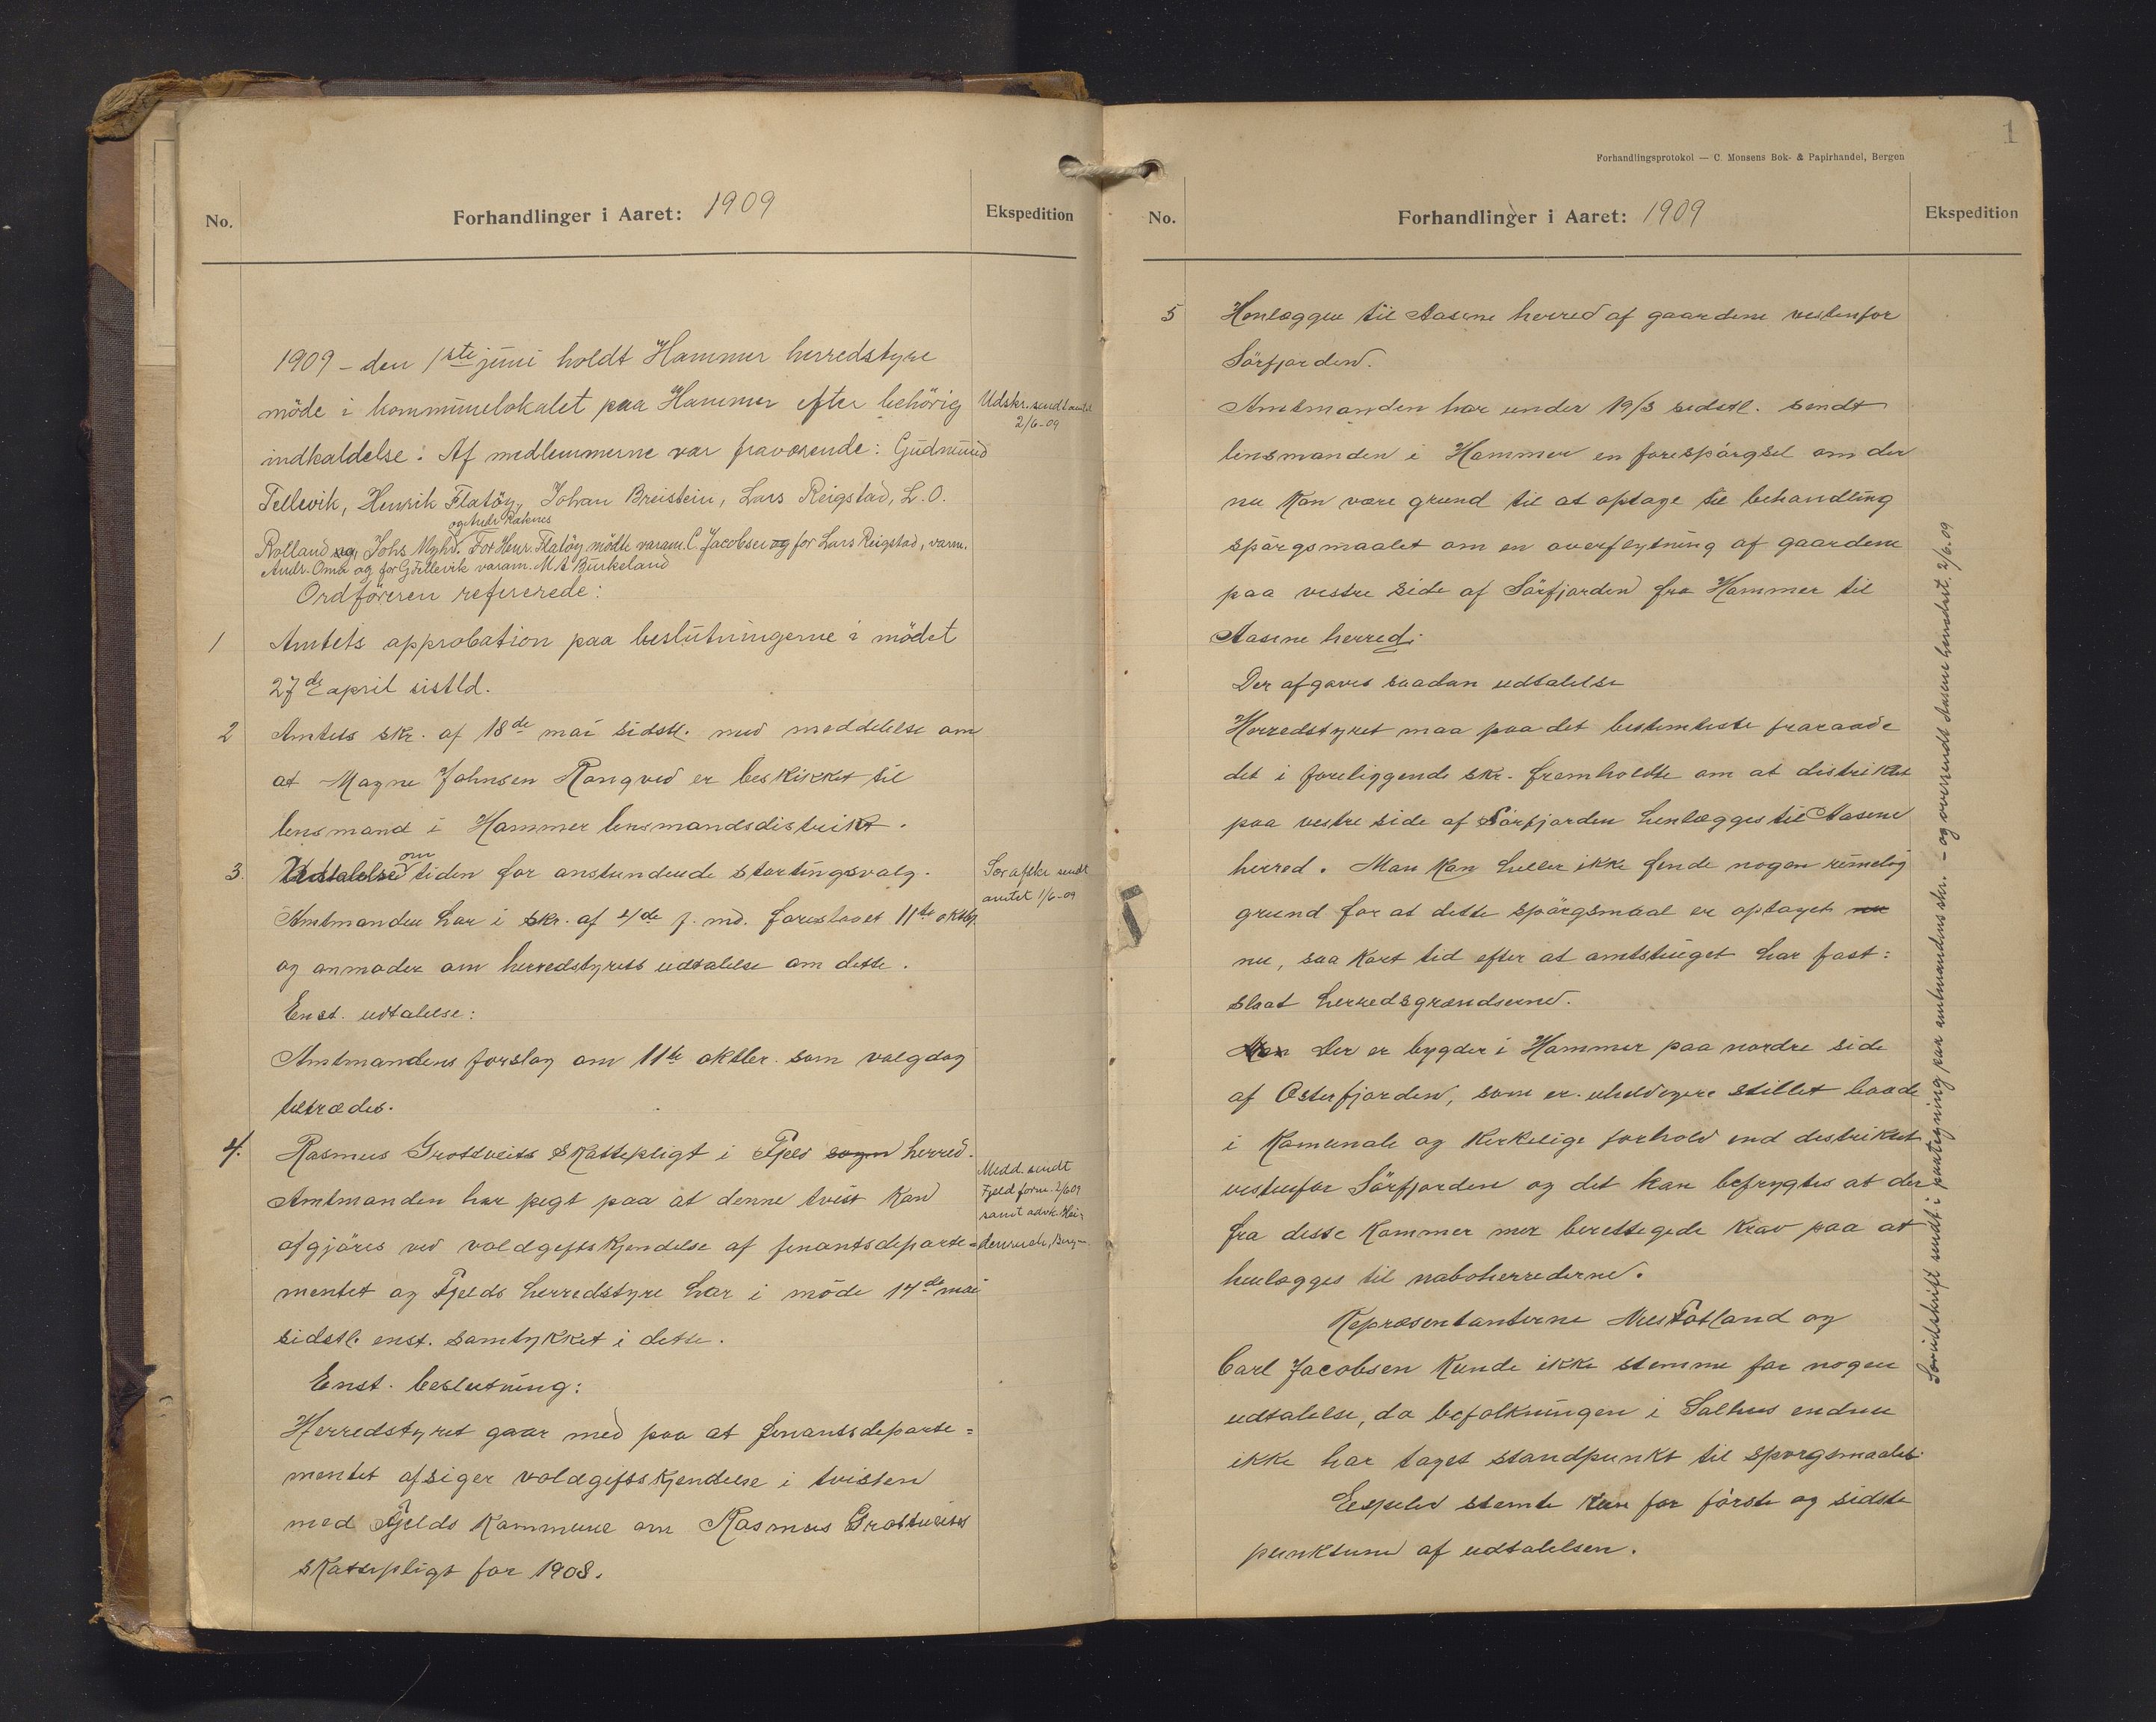 No.
Forhandlinger i Aaret: 1909
Ekspedition
1909 - den 1ste juni holdt Hammer herredstyre
möde i kommunelokalet paa Hammer efter behörig
indkaldelse. Af medlemmerne var fraværende: Gudmund
Tellevik, Henrik Flatöy, Johan Breistein, Lars Reigstad, L. O.
og Andr Raknes
Rolland og Johs Myhr. For Henr. Flatöy mödte varam. C. Jacobsen og for Lars Reigstad, varm.
Andr. Omå og for G Tellevik varam. M A Birkeland
Ordföreren refererede:
1 Amtets approbation paa beslutningerne i mödet
27de april sistld.
2 Amtets skr. af 18de mai sidstl. med meddelelse om
at Magne Johnsen Rongved er beskikket til
lensmand i Hammer lensmandsdistrikt.
om
3. Udtalelse tiden for anstundende stortingsvalg.
Amtmanden har i skr. af 4/de f. md. foreslaaet 11te oktbr.
og anmoder om herredstyrets udtalelse om dette.
Enst. udtalelse:
Amtmandens forslag om 11te oktbr. som valgdag
tiltrædes.
4. Rasmus Grottveits skattepligt i Fjeld sogn herred.
Amtmanden har pegt paa at denne tvist kan
afgjöres ved voldgiftskjendelse af finantsdeparte=
mentet og Fjelds herredstyre har i möde 14de mai
sidstl. enst. samtykket i dette.
Enst. beslutning:
Herredstyret gaar med paa at finantsdeparte=
mentet afsiger voldgiftskjendelse i tvisten
med Fjelds kommune om Rasmus Grottveits
skattepligt for 1908.
Udskr. sendt amtet
2/6-09
sendt
amtet 1/6-09
Medd. sendt
Fjeld form. 2/6 09
samt advk.
1
Forhandlingsprotokol — C. Monsens Bok- & Papirhandel, Bergen
No.
Forhandlinger i Aaret: 1909
Ekspedition
5 Henlæggen til Aasene herred af gaardene vestenfor
Sörfjorden.
Amtmanden har under 19/3 sidstl. sendt
lensmanden i Hammer en forespörgsel om der
nu kan være grund til at optage til behandling
spörgsmaalet om en overflytning af gaardene
paa vestre side af Sörfjorden fra Hammer til
Aasene herred.
Der afgaves saadan udtalelse
Herredstyret maa paa det bestemteste fraraade
det i foreliggende skr. fremholdte om at distriktet
paa vestre side af Sörfjorden henlægges til Aasene
herred. Man kan heller ikke finde nogen rimelig
grund for at dette spörgsmaal er optaget nu
nu, saa kort tid efter at amtstinget har fast:
slaat herredsgrændserne.
Men Der er bygder i Hammer paa nordre side
af Osterfjorden, som er uheldigere stillet baade
i komunale og kirkelige forhold end distriktet
vestenfor Sörfjorden og det kan befrygtes at der
fra disse kommer mer berettigede krav paa at
henlægges til naboherrederne.
Repræsentanterne Nils Totland og
Carl Jacobsen kunde ikke stemme for nogen
udtalelse, da befolkningen i Salhus endnu
ikke har taget standpunkt til spörgsmaalet.
Eespelid stemte kun for förste og sidste
punktum af udtalelsen.
Særudskrift sendt i paategning paa amtmandens skr. - og oversendt Aasene 2/6.09